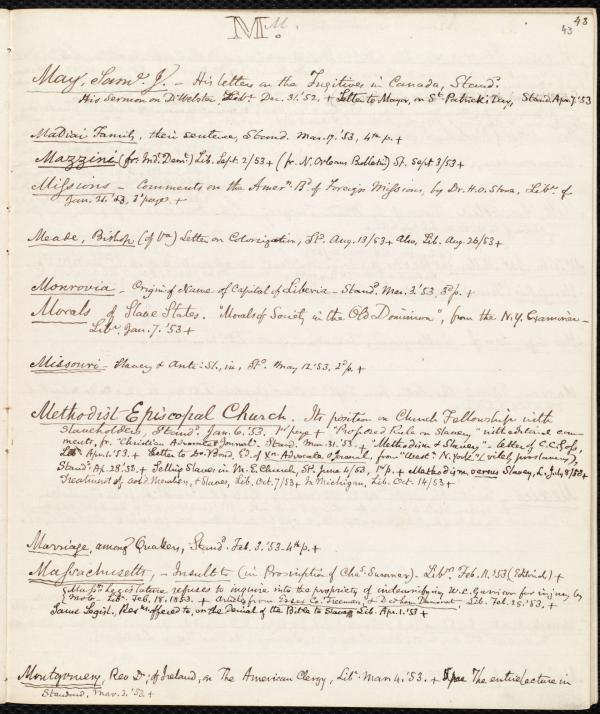 M. M. 43
43
May, Saml. J. - His letters on the Fugitives in Canada, Stand.
His Sermon on D. Webster, Lib. Dec. 31. '52. + Letter to Mayor, on St. Patrick's Day, Stand. Apr. 7. '53
Madiai Family, their sentence, Stand. Mar. 17. '53, 4th p. +
Mazzini (fr. Ind. Demt.) Lib. Sept. 2/53 + (fr. N. Orleans Bulletin) St. Sept 3/53 +
Missions - Comments on the Amern. Bd. of Foreign Missions, by Dr. H.O. Stone, Libr. of
Jan. 21. '53, 2d page. +
Meade, Bishop (of Va) Letter on Colonization, St. Aug. 13/53 + Also, Lib. Aug. 26/53 +
Monrovia - Origin of Name of Capital of Liberia - Stand. Mar. 3. '53, 3d p. +
Morals of Slave States. "Morals of Society in the Old Dominion", from the N.Y. Examiner -
Libr. Jan. 7. '53 +
Missouri - Slavery & Anti-Sl., in, St. May 12. '53. 2d p. +
Methodist Episcopal Church. Its position on Church Fellowship with
Slaveholders, Stand. Jan. 6. '53. 1st page + "Proposed Rule on Slavery" with editorial com-
ments, fr. "Christian Advocate & Journal". Stand. Mar. 31. '53 + "Methodism & Slavery" - letter of C.C.
Lib. Apr. 1. '53. + Letter to Dr. Bond, Ed. of Xn. Advocate & Journal, from "West" N. York" (vilely proslavery),
Stand. Ap. 28. '53. + Selling Slaves in M.E. Church, St. June 4/53, 1st p. + Methodism versus Slavery, L. July 8/53 +
Treatment of cold Members, & Slaves, Lib. Oct. 7/53 + In Michigan, Lib. Oct. 14/53 +
Marriage, among Quakers, Stand. Feb. 3. '53 - 4th p. +
Massachusetts, - Insult to (in Proscription of Chas. Sumner) - Libr. Feb. 11. '53 (Editorial) +
{Masss. Legislature refuses to inquire into the propriety of indemnifying W.L. Garrison for injury by
{Mob - Libr. Feb. 18. 1853. + Articles from Essex Co. Freeman, & Dedham Democrat, Lib. Feb. 25. '53, +
Same Legisl., Resns. offered to, on the Denial of the Bible to Slaves Lib. Apr. 1. '53 +
Montgomery, Rev Dr., of Ireland, on The American Clergy, Libr. Mar. 4. '53. + The entire lecture in
Standard, Mar. 3. '53 +